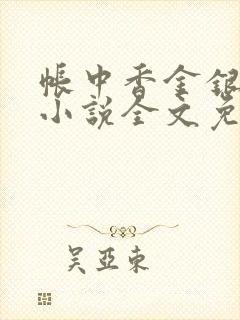 帐中香金银
小说全文免
吴亚东